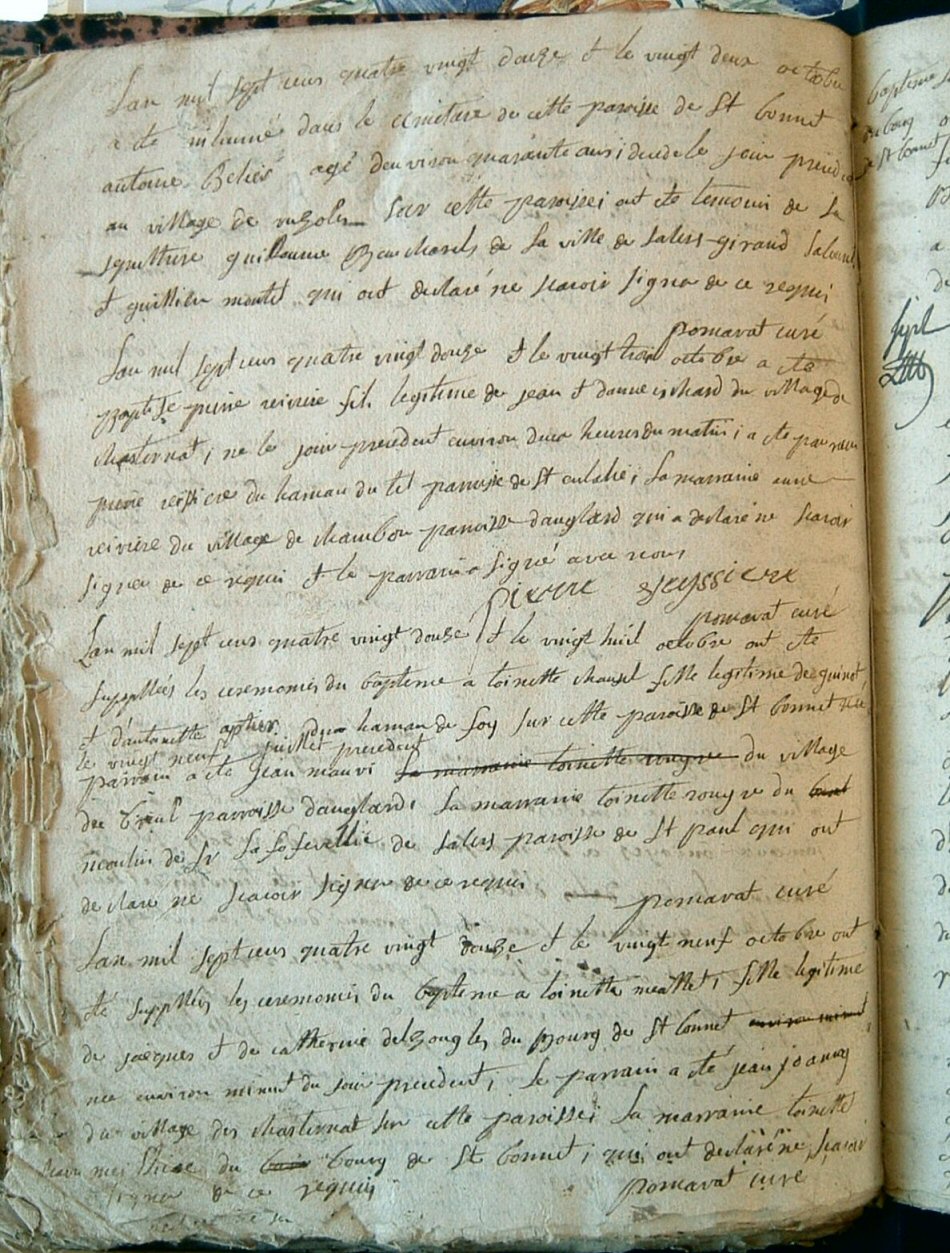 Lan mil sept cens quatre vingt douze et le vingt deux octobre
a ete inhumé dans le cimetiere de cette paroisse de St bonnet
antoine agé denviron quarante ans decedé le jour precedent
au village de sur cette paroisse ont ete temoins de sa
sepulture guillaume de la ville de salers giraud
et qui ont declaré ne scavoir signer de ce requis
pomarat curé
Lan mil sept cens quatre vingt douze et le vingt trois octobre a ete
baptise pierre reiviere fils legitime de jean et danne du village de
chasternat, ne le jour precedent environ deux heures du matin, a ete parrain
pierre du hameau du paroisse de St eulalie, la marraine anne
reiviere du village de chambon paroisse danglard qui a declaré ne scavoir
signer de ce requis et le parrain a signé avec nous
pierre veyssiere
pomarat curé
Lan mil sept cens quatre vingt douze et le vingt huit octobre ont ete
supplées les ceremonies du bapteme a toinette fille legitime de guinot
et dantoinette apcher du hameau de foy sur cette paroisse de St bonnet née
le vingt neuf juillet precedent
parrain a ete jean mauri la marraine toinette rougie du village
du breul paroisse danglard, la marraine toinette rougie du
moulin de Sr de salers paroisse de St paul qui ont
declaré ne scavoir signer de ce requis
pomarat curé
Lan mil sept cens quatre vingt douze et le vingt neuf octobre ont
été supplées les ceremonies du bapteme a toinette meallet, fille legitime
de jacques et de catherine delzongles du bourg de St bonnet environ minuit
nee environ minuit du jour precedent, le parrain a eté jean joanny
du village de chasternat sur cette paroisse, la marraine toinette
du bourg de St bonnet, qui ont declaré ne scavoir
signer de ce requis
pomarat curé
bapteme
du bourg
de St bonnet